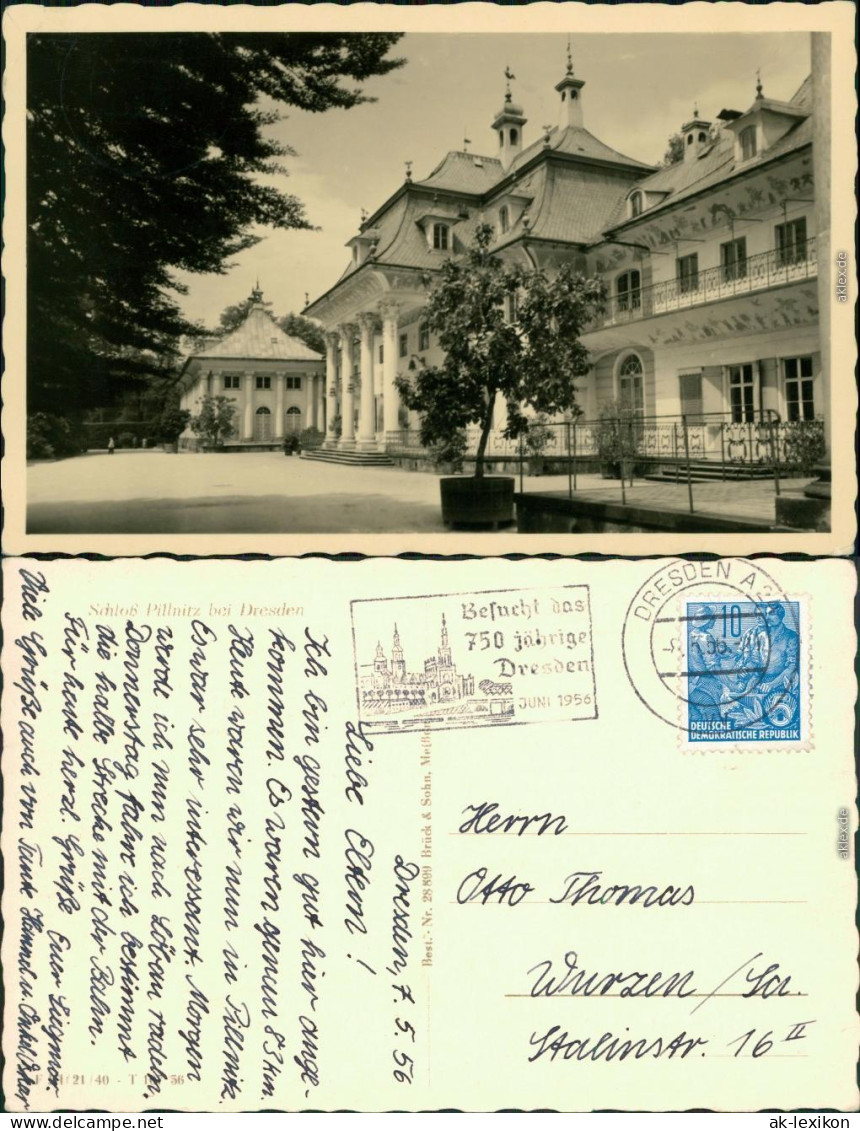 aklex.de
Schloß Pillnitz bei Dresden
Dresden, 7. 5. 56
Liebe Eltern!
Ich bin gestern gut hier ange-
kommen. Es waren genau 83 km.
Heute waren wir nun in Pillnitz.
Es war sehr interessant. Morgen
werde ich nun nach Löbau radeln.
Donnerstag fahre ich bestimmt
die halbe Strecke mit der Bahn.
Für heute herzl. Grüße Euer
Viele Grüße auch von Tante u. Onkel
Best.-Nr. 28899 Brück & Sohn, Meiße
21/40 - T 56
Besucht das
750 jährige
Dresden
JUNI 1956
DRESDEN A
10
DEUTSCHE
DEMOKRATISCHE REPUBLIK
Herrn
Otto Thomas
Wurzen / Sa.
Stalinstr. 16 II
aklex.de
www.delcampe.net
ak-lexikon